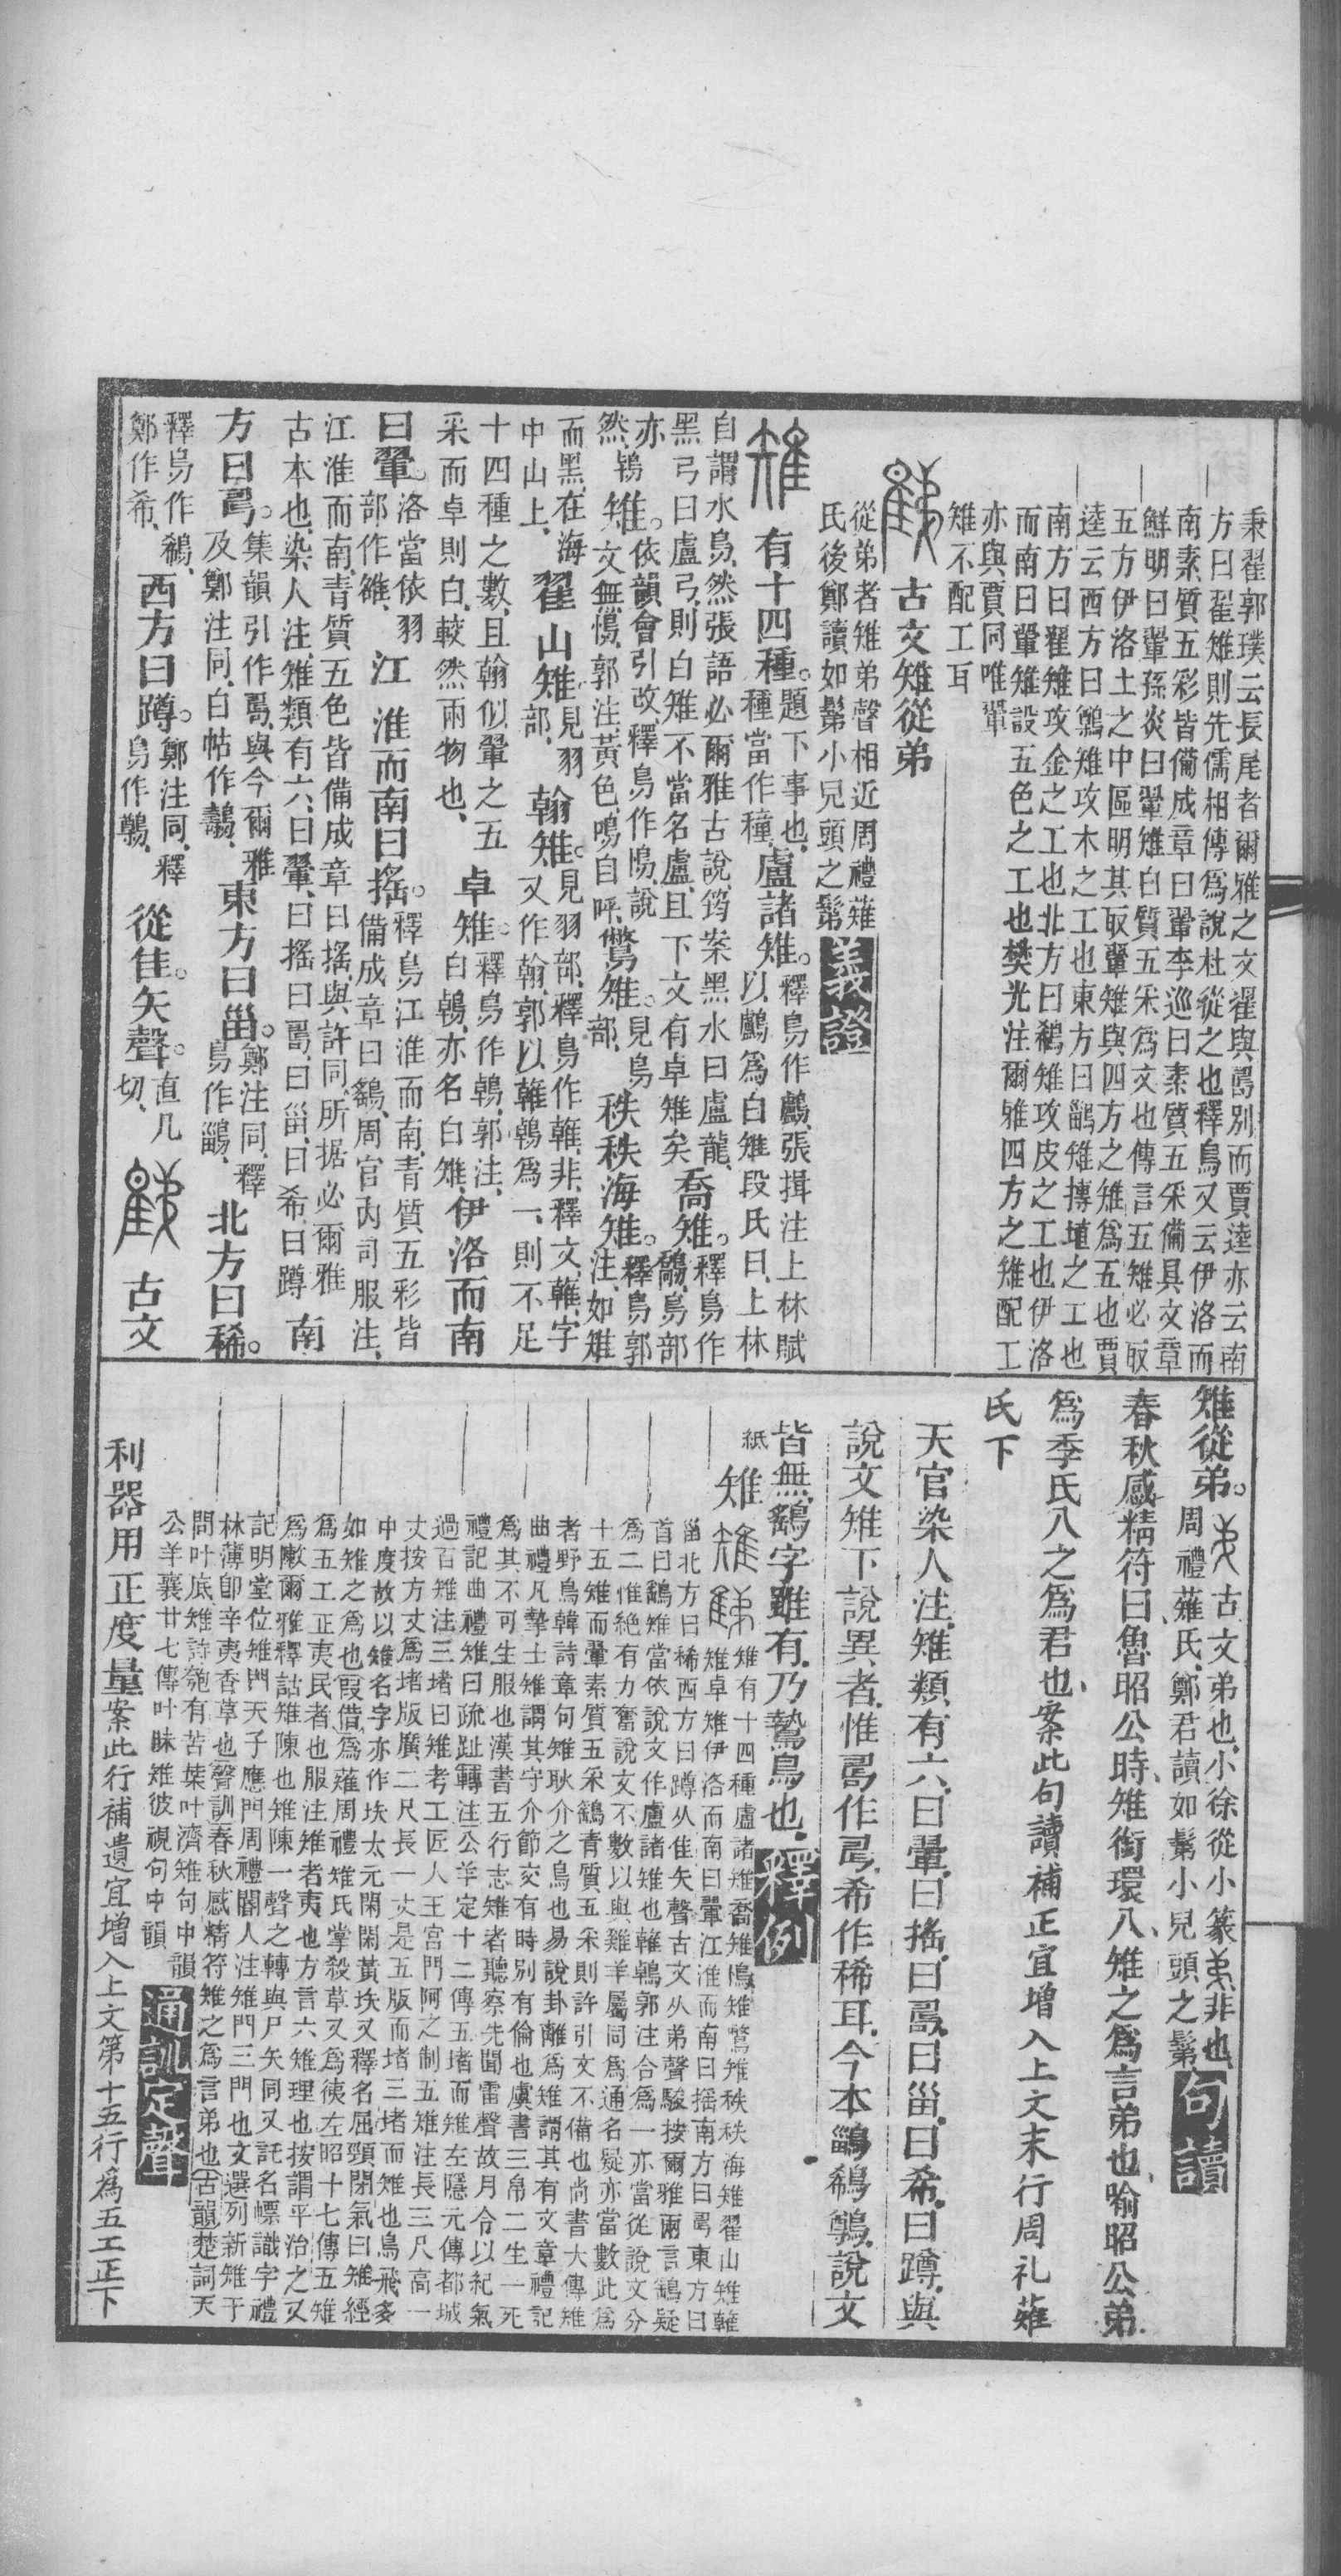 秉翟郭璞云長尾者爾雅之文翟與鷮別而賈逵亦云南
方曰翟雉則先儒相傳爲說杜從之也釋鳥又云伊洛而
南素質五彩皆備成章曰翬李巡曰素質五采備具文章
鮮明曰翬孫炎曰翬雉白質五采爲文也傳言五雉必取
五方伊洛土之中區明其取翬雉與四方之雉爲五也賈
逵云西方曰鷷雉攻木之工也東方曰鶅雉摶埴之工也
南方曰翟雉攻金之工也北方曰鵗雉攻皮之工也伊洛
而南曰翬雉設五色之工也樊光注爾雅四方之雉配工
亦與賈同唯翬
雉不配工耳
古文雉從弟
從弟者雉弟聲相近周禮薙
氏後鄭讀如鬀小兒頭之鬀
義證
有十四種。題下事也、
種當作穜、
盧諸雉。釋鳥作鸕、張揖注上林賦
以鸕爲白雉段氏曰、上林
自謂水鳥、然張語必爾雅古說、筠案黑水曰盧龍、
黑弓曰盧弓、則白雉不當名盧、且下文有卓雉矣
喬雉。釋鳥作
鷮、鳥部
亦
然、
鳪雉。依韻會引改、釋鳥作鳪、說
文無鳪、郭注、黃色、鳴自呼、
鷩雉。見鳥
部、
秩秩海雉。釋鳥郭
注、如雉
而黑、在海
中山上、
翟山雉。見羽
部、
翰雉。見羽部、釋鳥作雗、非、釋文、雗、字
又作翰、郭以雗鵫爲一、則不足
十四種之數、且翰似翬之五
采而卓則白、較然兩物也、
卓雉。釋鳥作鵫、郭注、
白鵫、亦名白雉、
伊洛而南
曰翬。洛當依羽
部作雒、
江淮而南曰搖。釋鳥江淮而南、青質五彩皆
備成章曰鷂、周官內司服注、
江淮而南、青質五色皆備成章曰搖與許同、所据必爾雅
古本也、染人注、雉類有六、曰翬、曰搖曰𢏚、曰甾、曰希、曰蹲
南
方曰𢏚。集韻引作𢏚、與今爾雅
及鄭注同、白帖作翿、
東方曰甾。鄭注同、釋
鳥作鶅、
北方曰稀。
釋鳥作鵗、
鄭作希、
西方曰蹲。鄭注同、釋
鳥作鷷、
從隹。矢聲。直几
切、
古文
雉從弟。
古文弟也、小徐從小篆非也、
周禮薙氏、鄭君讀如鬀小兒頭之鬀
句讀
春秋感精符曰、魯昭公時、雉銜環八、雉之爲言弟也、喻昭公弟
爲季氏八之爲君也、案此句讀補正宜增入上文末行周礼薙
氏下
天官染人注、雉類有六、曰翬、曰搖、曰𢏚、曰甾、曰希、曰蹲、與
說文雉下說異者、惟𢏚作𢏚、希作稀耳、今本鶅鵗鷷、說文
皆無、鷂字雖有、乃鷙鳥也、
釋例
紙
雉
雉有十四種盧諸雉喬雉鳪雉鷩雉秩秩海雉翟山雉雗
雉卓雉伊洛而南曰翬江淮而南曰搖南方曰𢏚東方曰
甾北方曰稀西方曰蹲从隹矢聲古文从弟聲駿按爾雅爾言鷂疑
首曰鷂雉當依說文作盧諸雉也雗鵫郭注合爲一亦當從說文分
爲二惟絕有力奮說文不數以與雞羊屬同爲通名疑亦當數此爲
十五雉而翬素質五采鷂青質五采則許引文不備也尚書大傳雉
者野鳥韓詩章句雉耿介之鳥也易說卦離爲雉謂其有文章禮記
曲禮凡摯士雉謂其守介節交有時別有倫也虞書三帛二生一死
爲其不可生服也漢書五行志雉者聽察先聞雷聲故月令以紀氣
禮記曲禮雉曰疏趾轉注公羊定十二傳五堵而雉左隱元傳都城
過百雉注三堵曰雉考工匠人王宮門阿之制五雉注長三尺高一
丈按方丈爲堵版廣二尺長一丈是五版而堵三堵而雉也鳥飛多
中度故以雉名字亦作垁太元閑閑黃垁又釋名屈頸閉氣曰雉經
如雉之爲也叚借爲薙周禮雉氏掌殺草又爲徲左昭十七傳五雉
爲五工正夷民者也服注雉者夷也方言六雉理也按謂平治之又
爲敶爾雅釋詁雉陳也雉陳一聲之轉與尸矢同又託名幖識字禮
記明堂位雉門天子應門周禮閽人注雉門三門也文選列新雉于
林薄卽辛夷香草也聲訓春秋感精符雉之爲言弟也古韻楚詞天
問叶底雉詩匏有苦葉叶濟雉句中韻
公羊襄廿七傳叶眛雉彼視句中韻
通訓定聲
利器用正度量案此行補遺宜增入上文第十五行爲五工正下